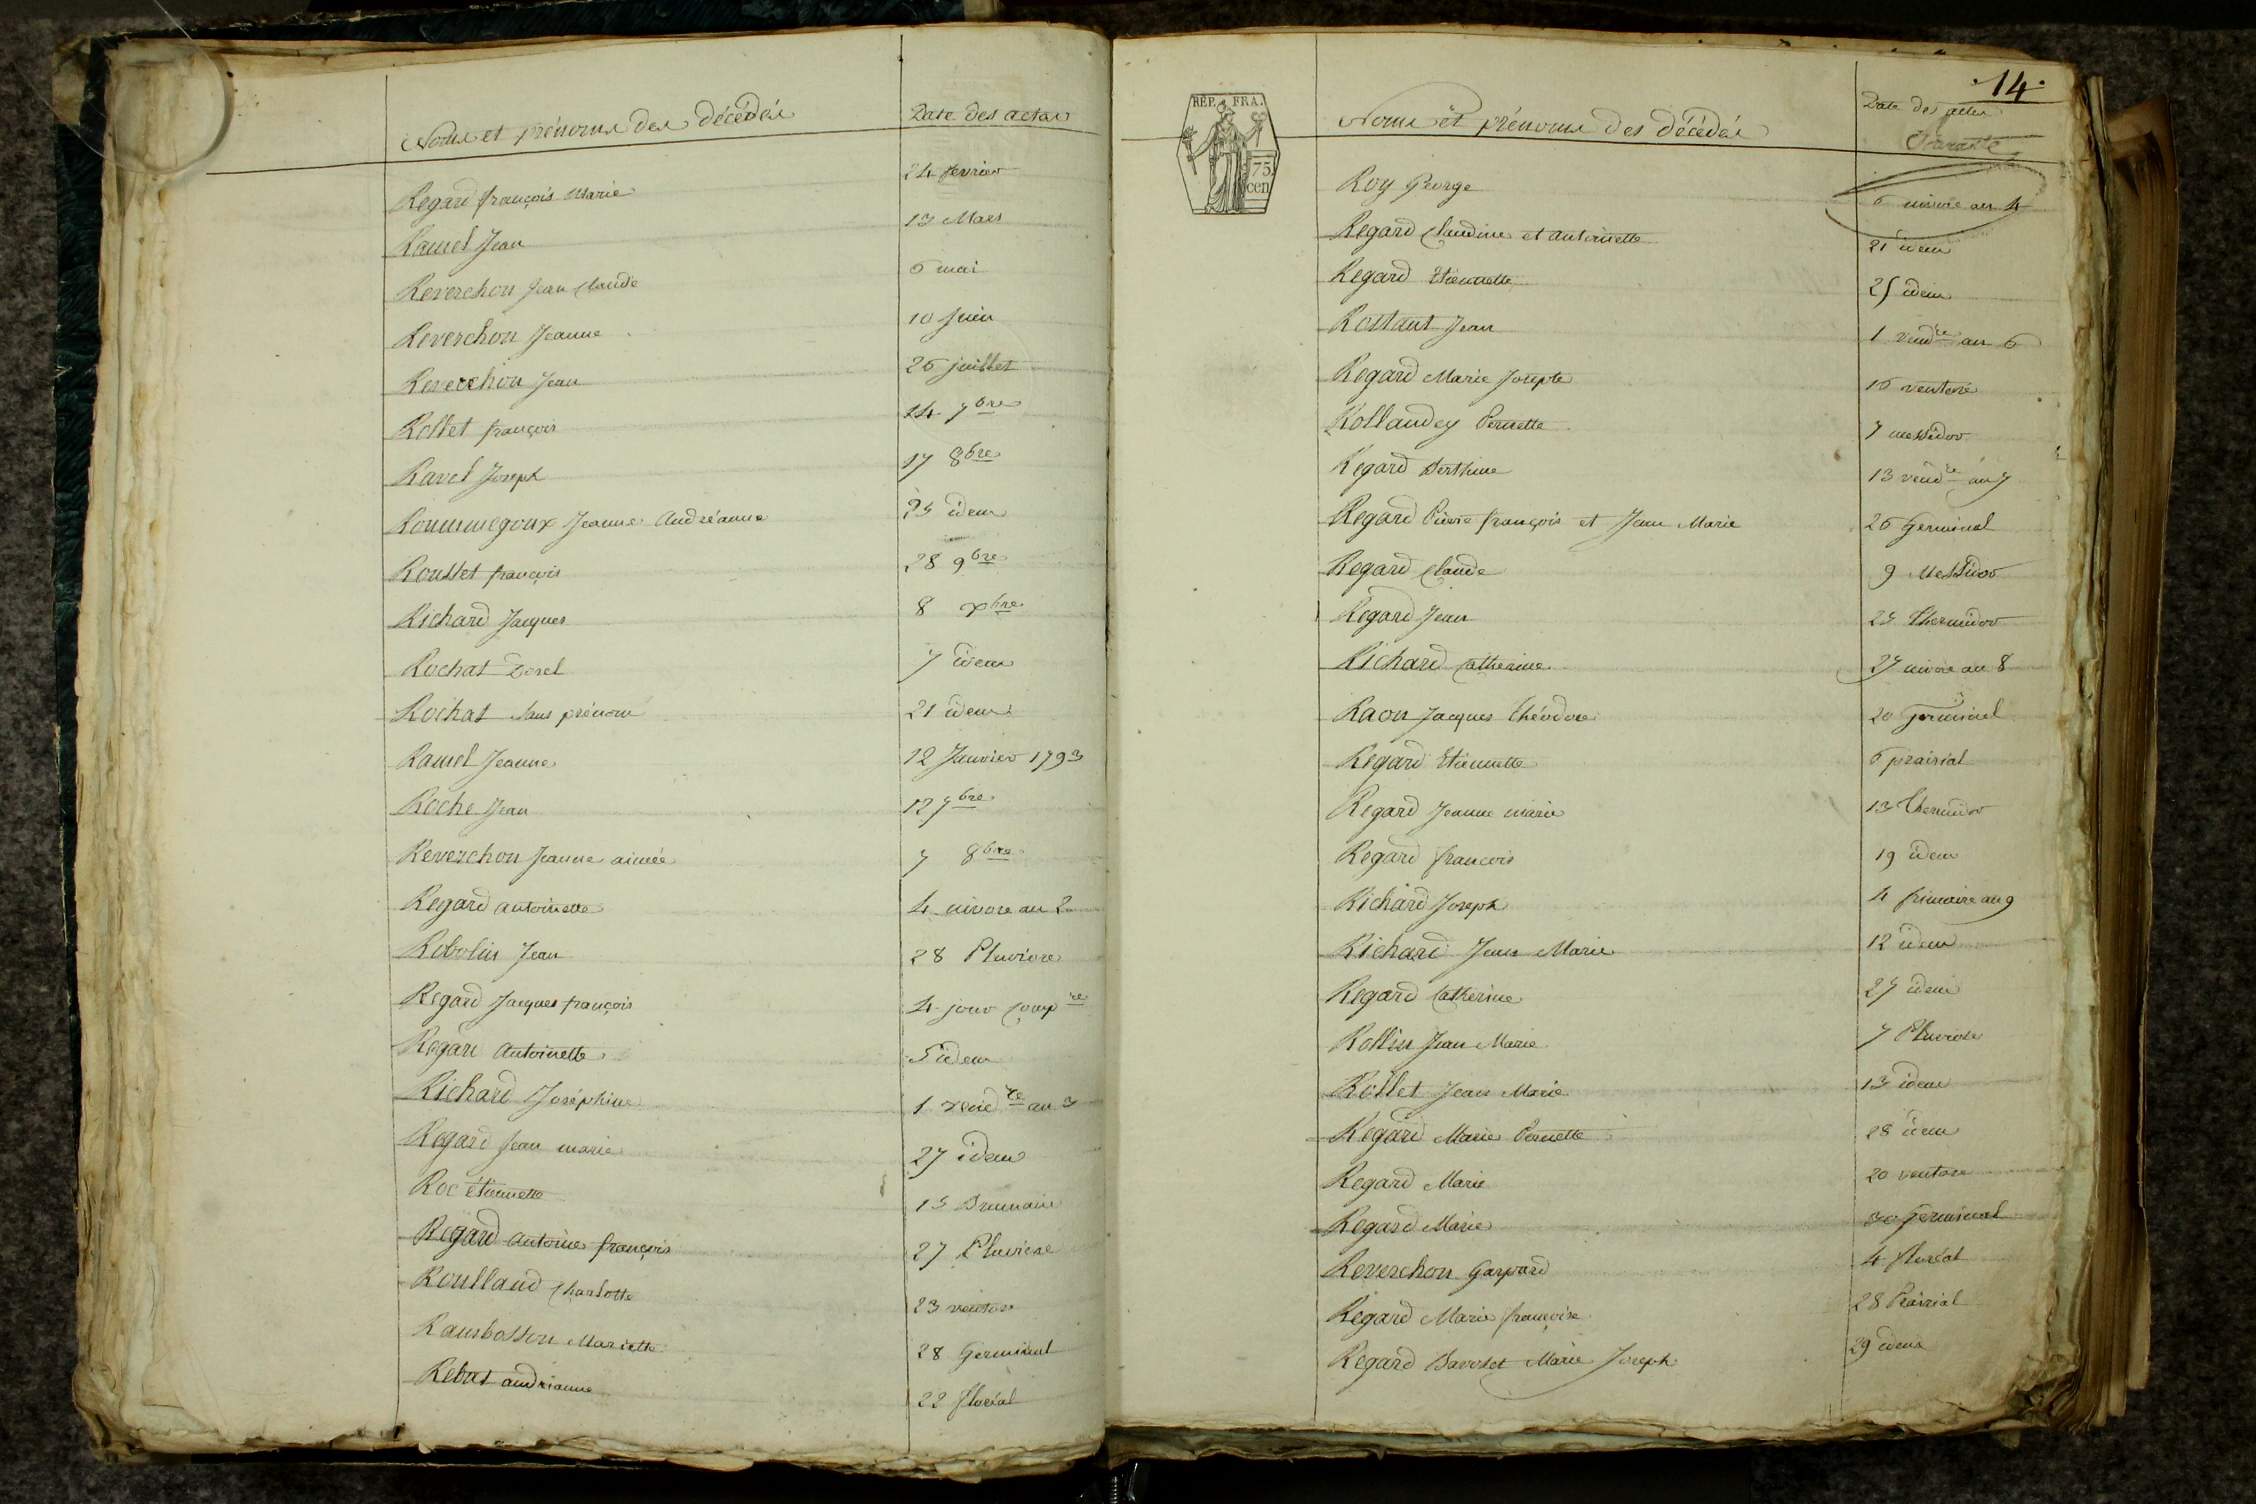 Noms et prénoms des décédés Date des actes
Regard françois Marie 24 fevrier
Ramel Jean 13 Mars
Reverchon Jean Claude 6 mai
Reverchon Jeanne 10 Juin
Reverchon Jean 26 juillet
Rollet françois 14 7bre
Ravel Joseph 17 8bre
Roummegoux Jeanne Andréanne 25 idem
Rousset françois 28 9bre
Richard Jacques 8 xbre
Rochat 7 idem
Rochat sans prénom 21 idem
Ramel Jeanne 12 Janvier 1793
Roche Jean 12 7bre
Reverchon Jeanne aimée 7 8bre
Regard antoinette 4 nivose an 2
Robolin Jean 28 Pluviose
Regard Jacques françois 4 jour comp re
Regard Antoinette 5 idem
Richard Joséphine 1 vend re an 3
Regard Jean marie 27 idem
Roc étiennette 15 Brumaire
Regard antoine françois 27 Pluviose
Roulland Charlotte 23 ventose
Ransbotton Mariette 28 Germinal
Rebut andrianne 22 floréal
14
REP. FRA.
75
cen
Noms et prénoms des décédés Date des actes
Roy George 6 nivose an 4
Regard Claudine et antoinette 21 idem
Regard Etiennette 25 idem
Rostant Jean 1 vend re an 6
Regard Marie Josepte 16 ventose
Rollandey Pernette 7 messidor
Regard Berthine 13 vend re an 7
Regard Pierre françois et Jean Marie 26 Germinal
Regard Claude 9 Messidor
Regard Jean 25 thermidor
Richard Catherine 27 nivose an 8
Raon Jacques théodore 20 germinal
Regard Etiennette 6 prairial
Regard Jeanne marie 13 Thermidor
Regard francois 19 idem
Richard Joseph 4 frimaire an 9
Richard Jean Marie 12 idem
Regard Catherine 27 idem
Rollin Jean Marie 7 Pluviose
Rollet Jean Marie 13 idem
Regard Marie Pernette 28 idem
Regard Marie 20 ventose
Regard Marie 30 germinal
Reverchon Gaspard 4 floréal
Regard Marie françoise 28 Prairial
Regard Marie Joseph 29 idem